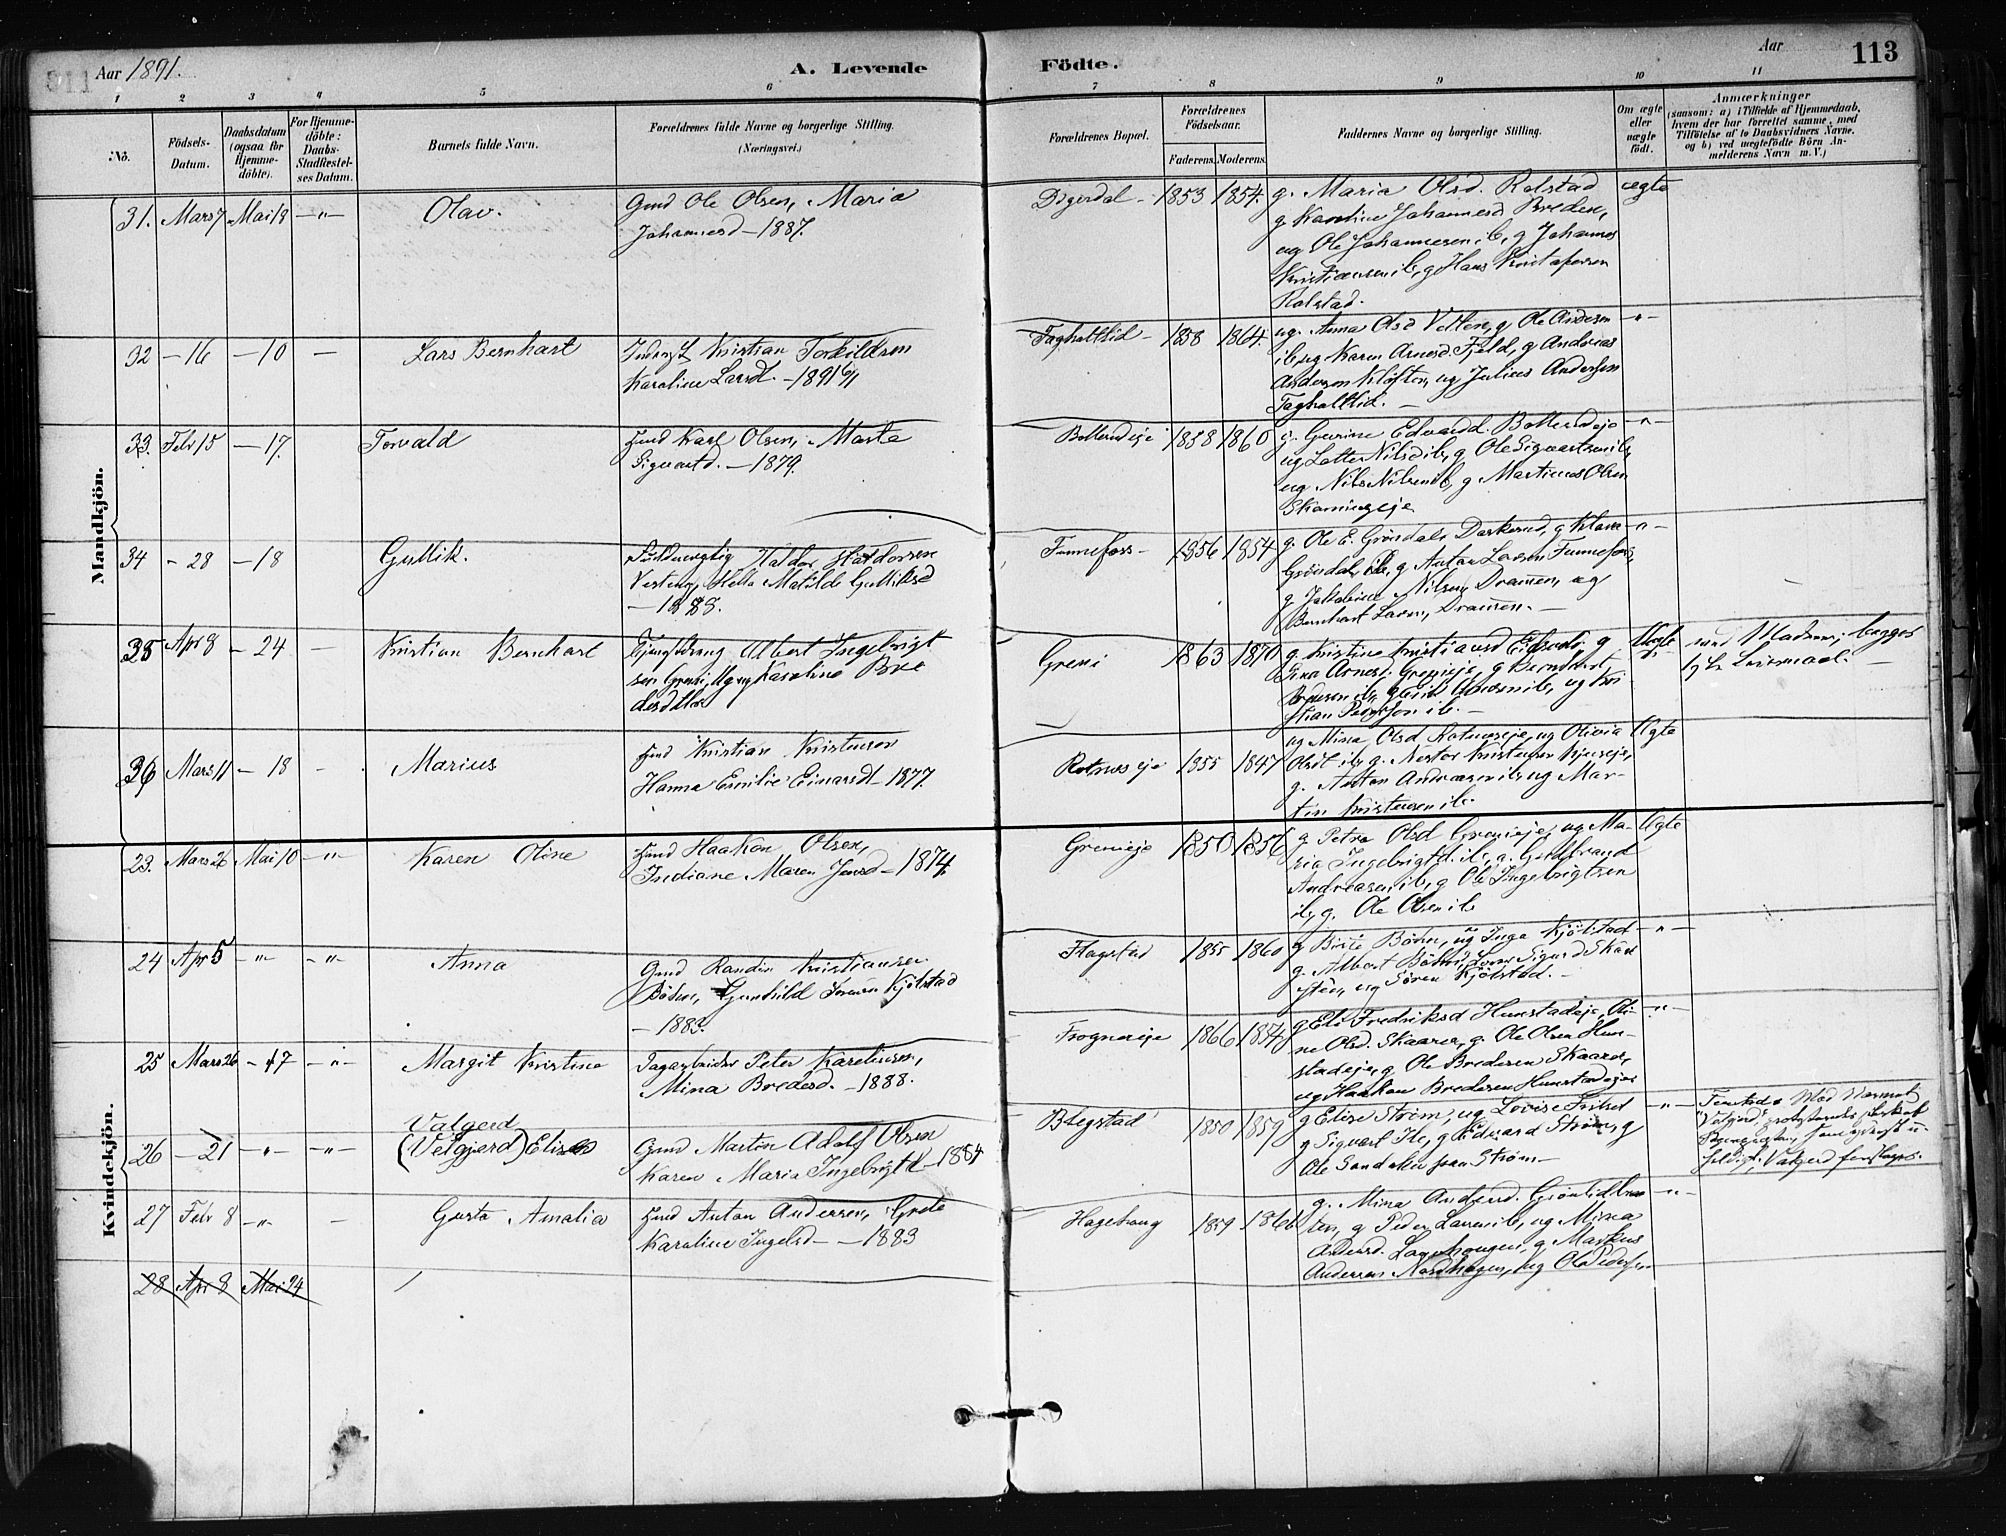 Aar 1891.
A. Levende
Födte.
Aar
113
1 2 3 4 5 6 7 8 9 10 11
No.
Födsels-
Datum.
Daabsdatum
(ogsaa for
Hjemme-
döbte).
For Hjemme-
döbte:
Daabs-
Stadfæstel-
ses Datum.
Barnets fulde Navn.
Forældrenes fulde Navne og borgerlige Stilling.
(Næringsvei.)
Forældrenes Bopæl.
Forældrenes
Födselsaar.
Faderens. Moderens.
Faddernes Navne og borgerlige Stilling.
Om ægte
eller
uægte
födt.
Anmærkninger
(saasom: a) i Tilfælde af Hjemmedaab,
hvem der har forrettet samme, med
Tilföielse af to Daabsvidners Navne.
og b) ved uægtefödte Börn An-
melderens Navn m. V.)
Mandkjön.
31. Mars 7 Mai 18 -"- Olav.
Gmd Ole Olsen, Maria
Johannesd - 1887.
Digerdal - 1853 1854.
g. Maria Olsd. Rolstad
g Karoline Johannesd Breden,
ug Ole Johannesen ib, g Johannes
Kristiansen ib, g Hans Kristofersen
Rolstad.
ægte
32 - 16 - 10 - Lars Bernhart
Kristian Torkildsen
Karoline Larsdt. - 1891
Taghaltlid - 1858 1864.
ug. Anna Olsd Vetlen, g Ole Andersen
ib, ug Karen Arnesd. Fjeld, g Andreas
Andersen Kloften, ug Julius Andersen
Taghaltlid. -
-"-
33. Febr 15 - 17. Torvald
Hmd Karl Olsen, Marte
Sigvartd. - 1879.
Bollerudeje 1858 1860
g. Gurine Edvardd. Bollerudeje
ug Lotte Nilsd ib, g Ole Sigvartsen ib,
ug Nils Nilsen ib, g Martinus Olsen
Skamingeje
-"-
34 - 28 - 18 Gullik.
Haldor Haldorsen
Matilde Gulliksd
- 1888.
Funnefoss - 1856 1854
g. Ole E. Gröndal, Daskerud, g Klara
Gröndal, ib, g Anton Larsen Funnefoss,
g Jakobine Nilsen, Dramen, ug
Bernhart Larsen, Dramen. -
-"-
35 Apr 8 - 24 - Kristian Bernhart
Albert Ingebrigt
sen Greni, Ug ug Karoline Bre
desdatter
Greni 1863 1870
g. Kristine Kristiansd Eidsvold, g
Gina Arnesd. Grenieje, g Bernhart
ib, ug Kri
stian Pedersen ib. -
Uægte
Madsen; begges
1ste Leiermaal. -
36 Mars 11 - 18 - Marius
Hmd Kristian Kristensen
Hanna Emilie Einarsdt - 1877.
Rotneseje 1855 1847
ug Mina Olsd Rotneseje, ug Olivia
Olsdt ib, g. Nestor Kristensen
g. Anton Andreasen ib, ug Mar-
tin Kristensen ib.
Ægte
Kvindekjön.
23. Mars 26 Mai 10 -"- Karen Oline
Hmd Haakon Olsen,
Indiane Maren Jensd - 1874.
Grenieje 1850 1856
g Petra Olsd Grenieje, ug Ma-
ria Ingebrigtsd. ib, g. Guldbrand
Andreasen ib, g Ole Ingebrigtsen
ib, g. Ole Olsen ib
Ægte
24 Apr 5 -"- -"- Anna
Gmd Randin Kristiansen
Böhn, Gunhild Sorensen Kjölstad
- 1883.
Hagstad 1855 1860
g Berte Böhn, ug Inga Kjölstad
g. Albert Böhn, Sigurd Skar
sten, ug Sören Kjölstad. -
-"-
25 Mars 26 - 17 -"- Margit Kristine
Dagarbeider Peter Karelinsen,
Mina Bredesd. - 1888.
Frogner eje 1866 1854
g Eli Fredriksd Hunstadeje, Oli-
ne Olsd. Skaarer, g. Ole Olsen Hun-
stadeje, g Ole Bredesen Skaarer,
ug Haakon Bredesen Hunstadeje
-"-
Valgerd
26 - 21 -"- -"- (Velgjerd) Elise
Gmd Martin Adolf Olsen
Karen Maria Ingebrigtd - 1884
Blegstad 1850 1859
g Elise Ström, ug Lovise Fritsd
g Sigvart Ile, g Edvard Ström, g
Ole Sandaker paa Ström -
-"-
Mod Navnet
"Velgjerd", protesteredes
Valgerd foreslages.
27 Febr 8 -"- - Gusta Amalia
Hmd Anton Andersen, Grete
Karoline Ingelsd - - 1883
Hagebaug 1859 1866
g. Mina Andersd. Grönlidbraa
ten, g Peder Larsen ib, ug Mina
Andersd. Langhaugen, g Markus
Andersen Nordhagen, ug Ole Peders.
-"-
28 Apr 8 Mai 24